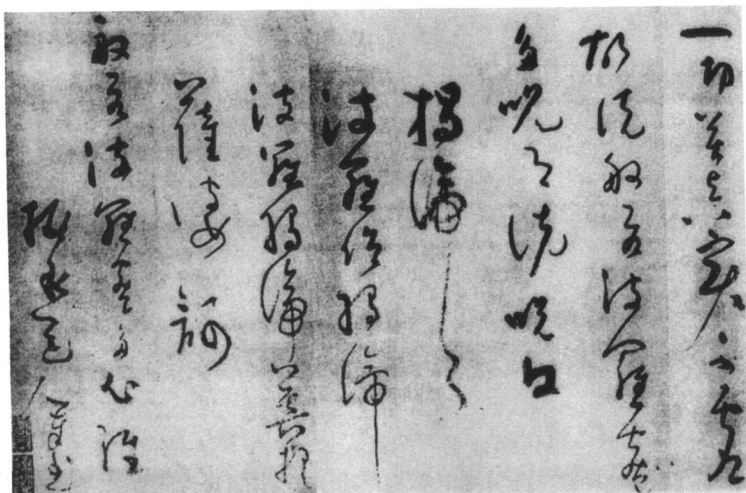 一切苦真實不虛
故說般若波羅蜜
多呪即說呪曰
揭諦〻
波羅僧揭諦
波羅揭諦菩提
薩婆訶
般若波羅蜜多心經
梅道人書